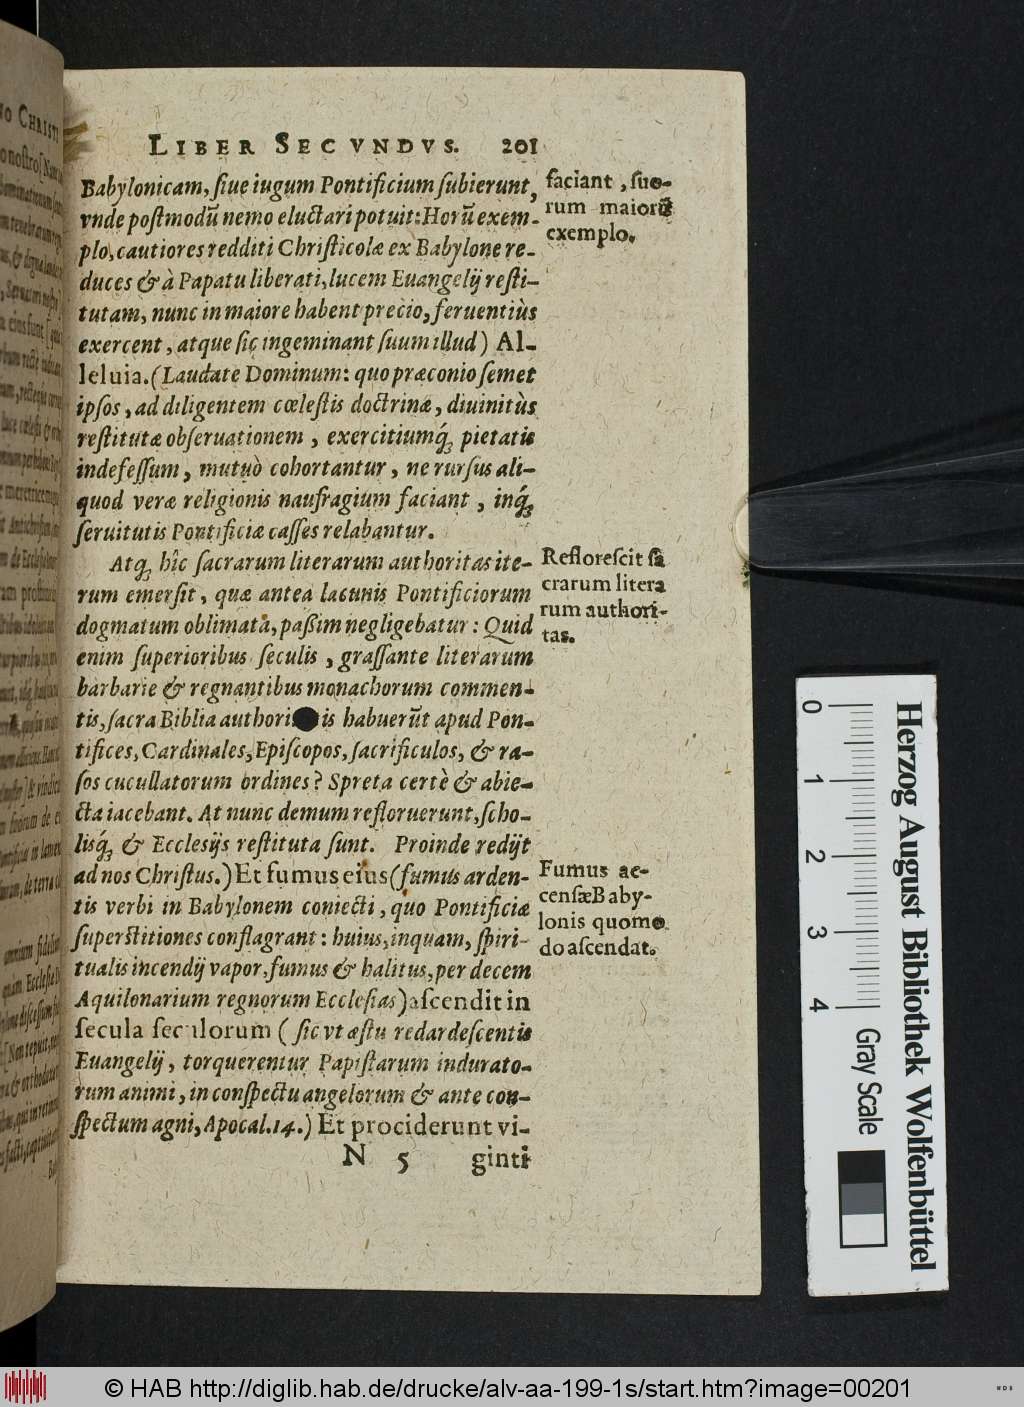 LIBER SECVNDVS. 201
Babylonicam, ſiue iugum Pontificium ſubierunt,
vnde poſtmodū nemo eluctari potuit: Horū exem-
plo, cautiores redditi Chriſticolæ ex Babylone re-
duces & à Papatu liberati, lucem Euangelij reſti-
tutam, nunc in maiore habent precio, feruentiùs
exercent, atque ſic ingeminant ſuum illud) Al-
leluia. (Laudate Dominum: quo præconio ſemet
ipſos, ad diligentem cœleſtis doctrinæ, diuinitùs
reſtitutæ obſeruationem, exercitiumq́ꝫ pietatis
indefeſſum, mutuò cohortantur, ne rurſus ali-
quod veræ religionis naufragium faciant, inq́ꝫ
ſeruitutis Pontificiæ caſſes relabantur.
faciant, ſuo-
rum maiorū
exemplo.
Atqꝫ hîc ſacrarum literarum authoritas ite-
rum emerſit, quæ antea lacunis Pontificiorum
dogmatum oblimata, paßim negligebatur: Quid
enim ſuperioribus ſeculis, graſſante literarum
barbarie & regnantibus monachorum commen-
tis, ſacra Biblia authori is habuerūt apud Pon-
tifices, Cardinales, Epiſcopos, ſacrificulos, & ra-
ſos cucullatorum ordines? Spreta certè & abie-
cta iacebant. At nunc demum refloruerunt, ſcho-
liſq́ꝫ & Eccleſijs reſtituta ſunt. Proinde redijt
ad nos Chriſtus.) Et fumus eius (fumus arden-
tis verbi in Babylonem coniecti, quo Pontificiæ
ſuperſtitiones conflagrant: huius, inquam, ſpiri-
tualis incendij vapor, fumus & halitus, per decem
Aquilonarium regnorum Eccleſias) aſcendit in
ſecula ſeculorum (ſic vt æſtu redardeſcentis
Euangelij, torquerentur Papiſtarum indurato-
rum animi, in conſpectu angelorum & ante con-
ſpectum agni, Apocal. 14.) Et prociderunt vi-
Refloreſcit ſa
crarum litera
rum authori-
tas.
Fumus ac-
cenſæ Baby-
lonis quomo
do aſcendat.
N 5 ginti
NO CHRISTI
0 1 2 3 4
Gray Scale
Herzog August Bibliothek Wolfenbüttel
© HAB http://diglib.hab.de/drucke/alv-aa-199-1s/start.htm?image=00201